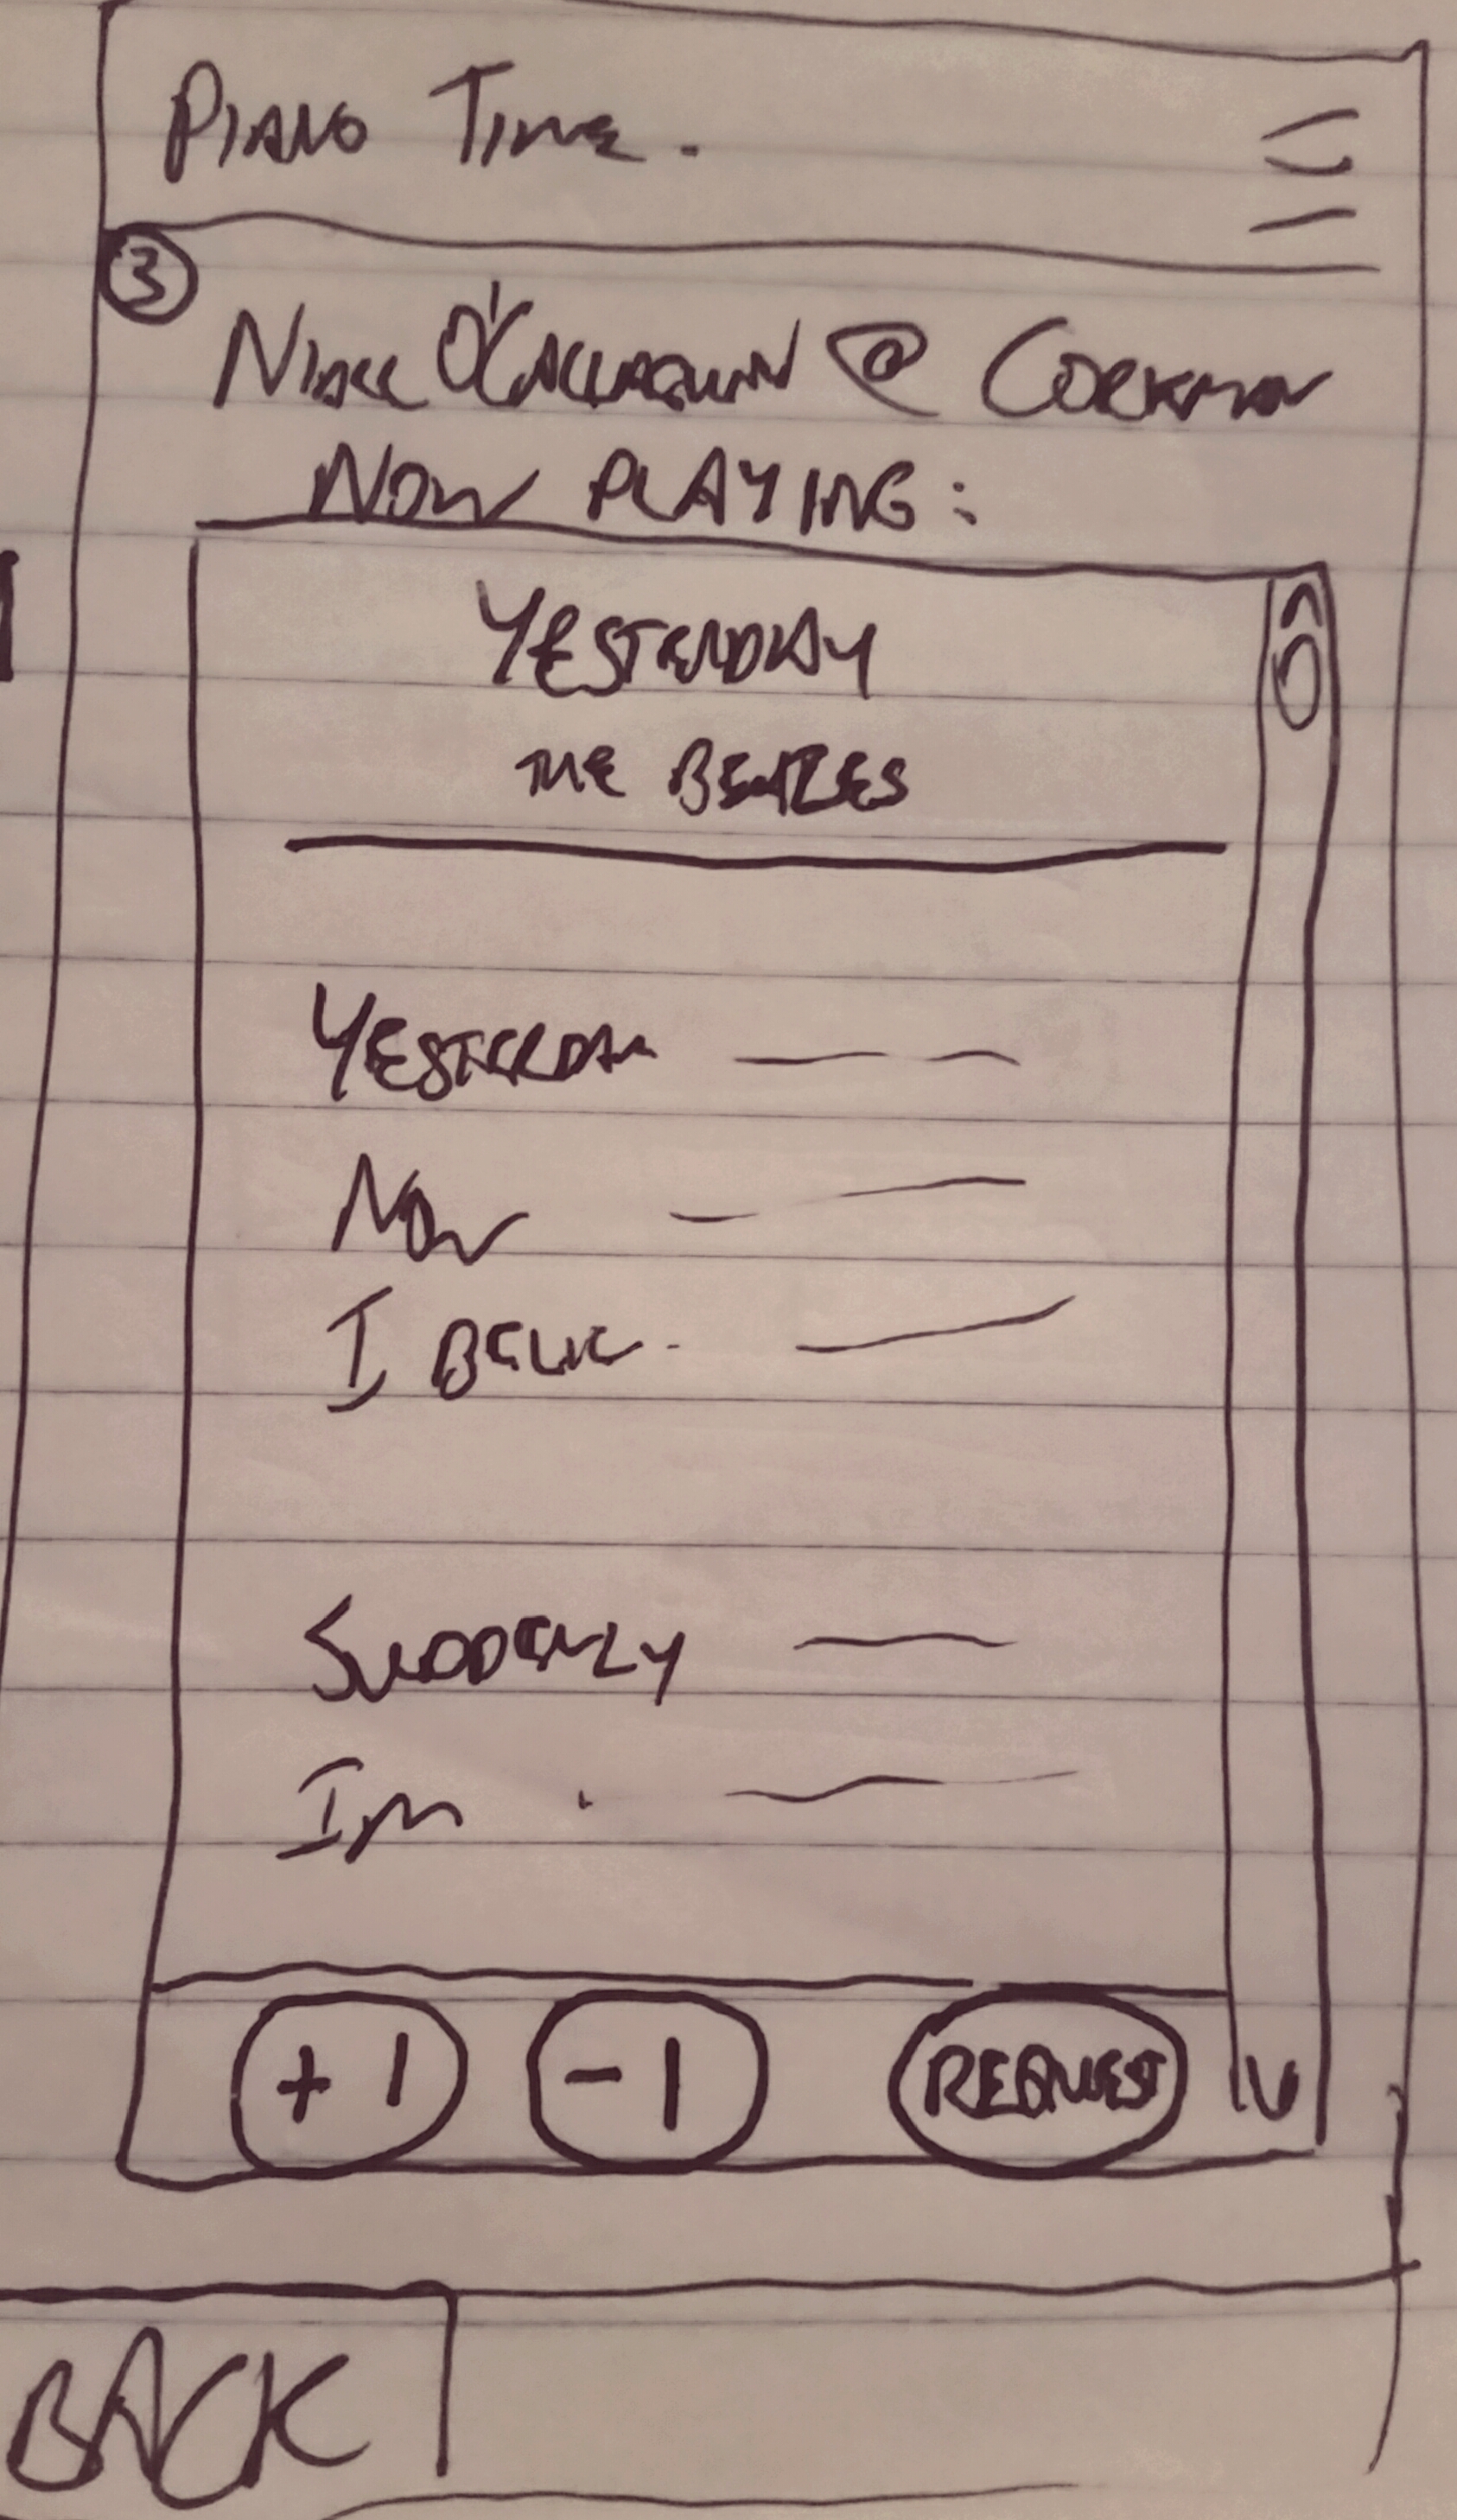 PIANO TIME.
3
NIALL O'CALLAGHAN @ CORKMAN
NOW PLAYING:
YESTERDAY
THE BEATLES
YESTERDAY
NOW
I BELIE
SUDDENLY
IM
+1 -1 REQUEST
BACK